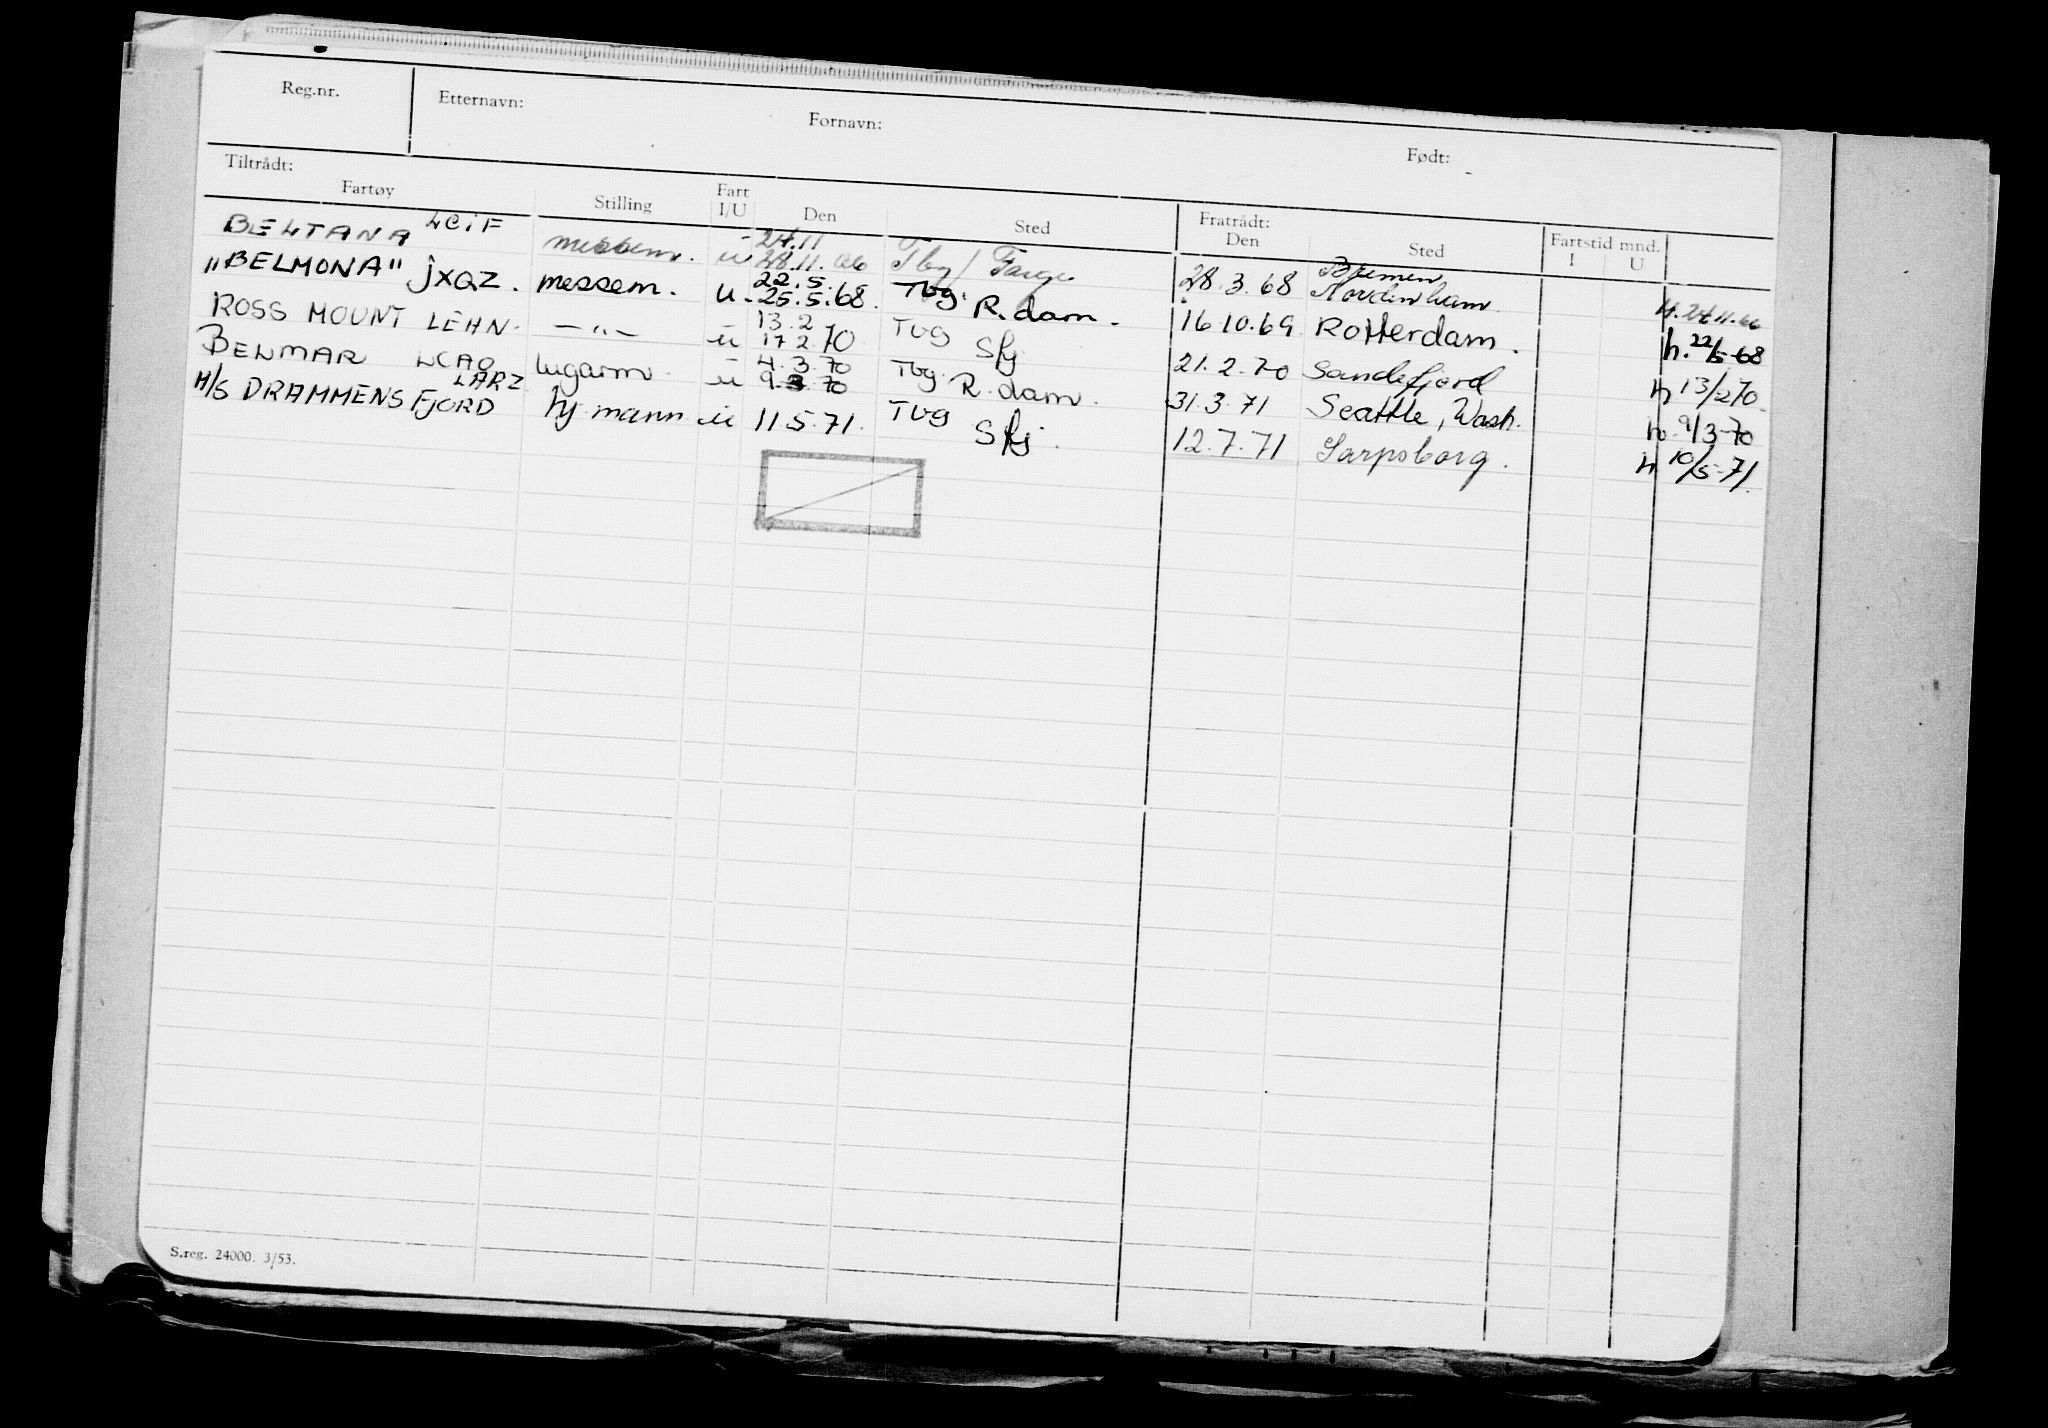 Reg.nr. Etternavn: Fornavn: Født:
Tiltrådt: Fratrådt: Fartstid mnd.
Fartøy Stilling Fart I/U Den Sted Den Sted I U
BELTANA LCIF messem. u 24.11 28.11.66 Tbg / Farge 28.3.68 Bremen Nordenham h. 24.11.66
"BELMONA" JXQZ. messem. u. 22.5. 25.5.68. Tbg. R.dam. 16.10.69 Rotterdam. h. 22/5-68
ROSS MOUNT LEHN. — " — u 13.2 17.2.70 Tbg Sfj 21.2.70 Sandefjord h 13/2 70.
BELMAR LCAO lugarm. u 4.3.70 9.3.70 Tbg. R.dam. 31.3.71 Seattle, Wash. h. 9/3-70
M/S DRAMMENSFJORD LARZ hj.mann u 11.5.71. Tbg Sfj. 12.7.71 Sarpsborg. h. 10/5-71.
S.reg. 24000. 3/53.